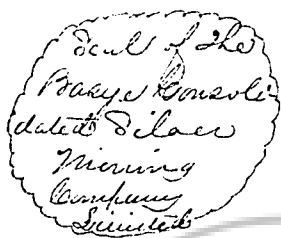 Seal of the
Basye Consoli-
dated Silver
Mining
Company
Limited